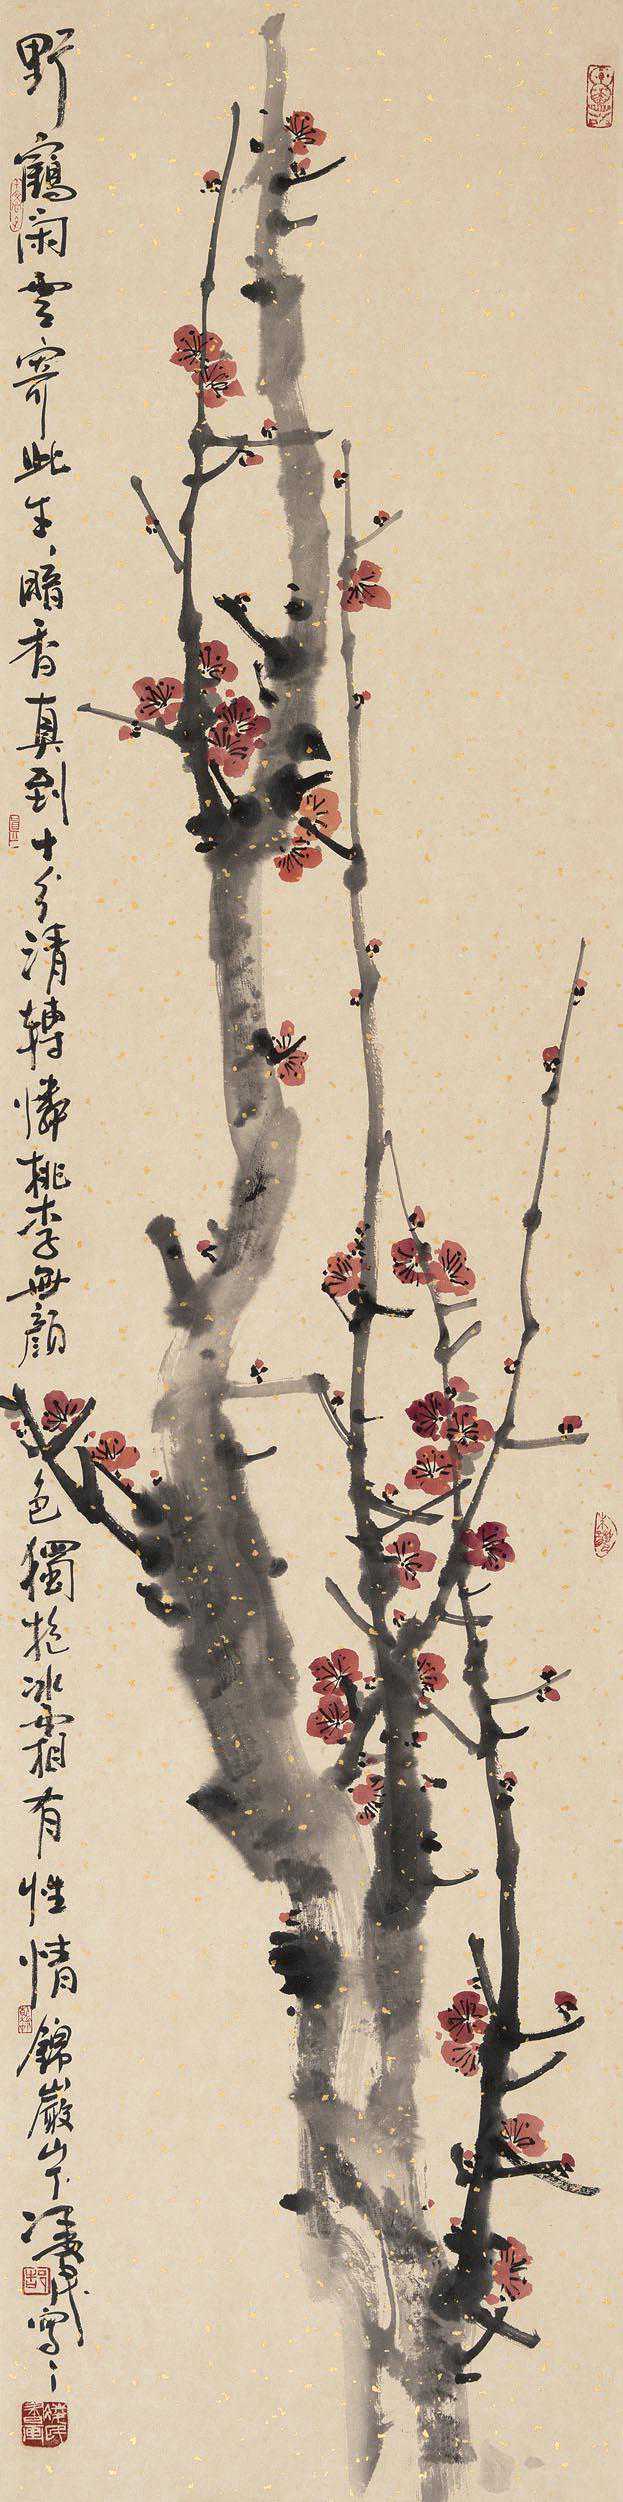 野鶴閑雲寄此生暗香真到十分清轉憐桃李無顏色獨抱冰霜有性情錦巖山下